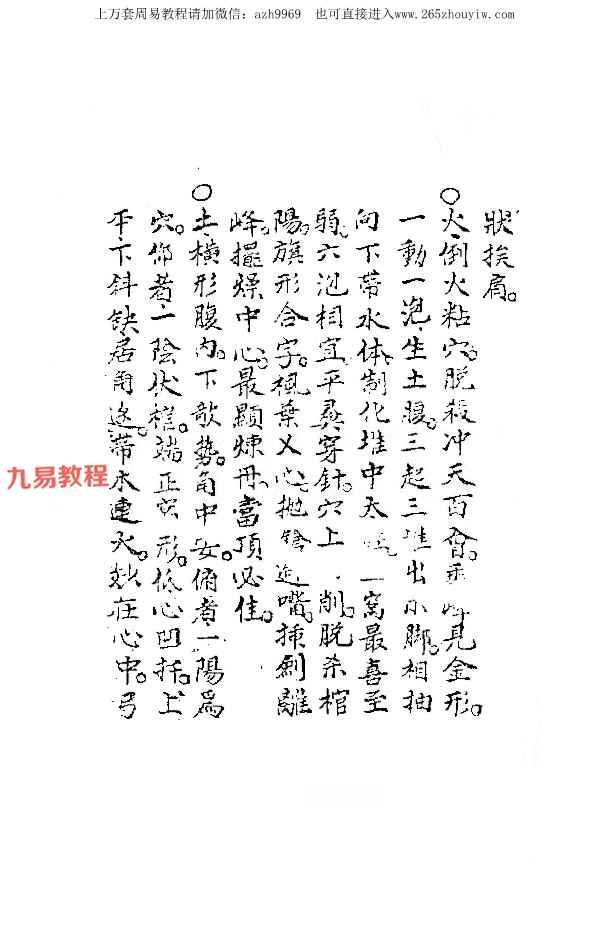 上万套周易教程请加微信：azh9969　也可直接进入www.265zhouyiw.com
狀挨肩。
○火倒火粘穴。脫殺冲天百會。乘峰見金形。
一動一泡生土腹。三起三堆出小脚。相抽
向下帶水体。制化堆中太 一窩最喜至
弱。六泡相宜。平彞穿針。穴上 削。脫杀棺
陽。旗形合字。楓葉乂心。抛鎗 嘴。揷劍離
峰。擺燥中心。最顯煉毋。當頂必佳。
○土橫形腹內。下欹勢。角中安。俯者一陽爲
穴。仰者一陰伏棺。端正 形。低心凹 。上
平下斜缺居角 。帶木連火。妙在心中。弓
九易教程